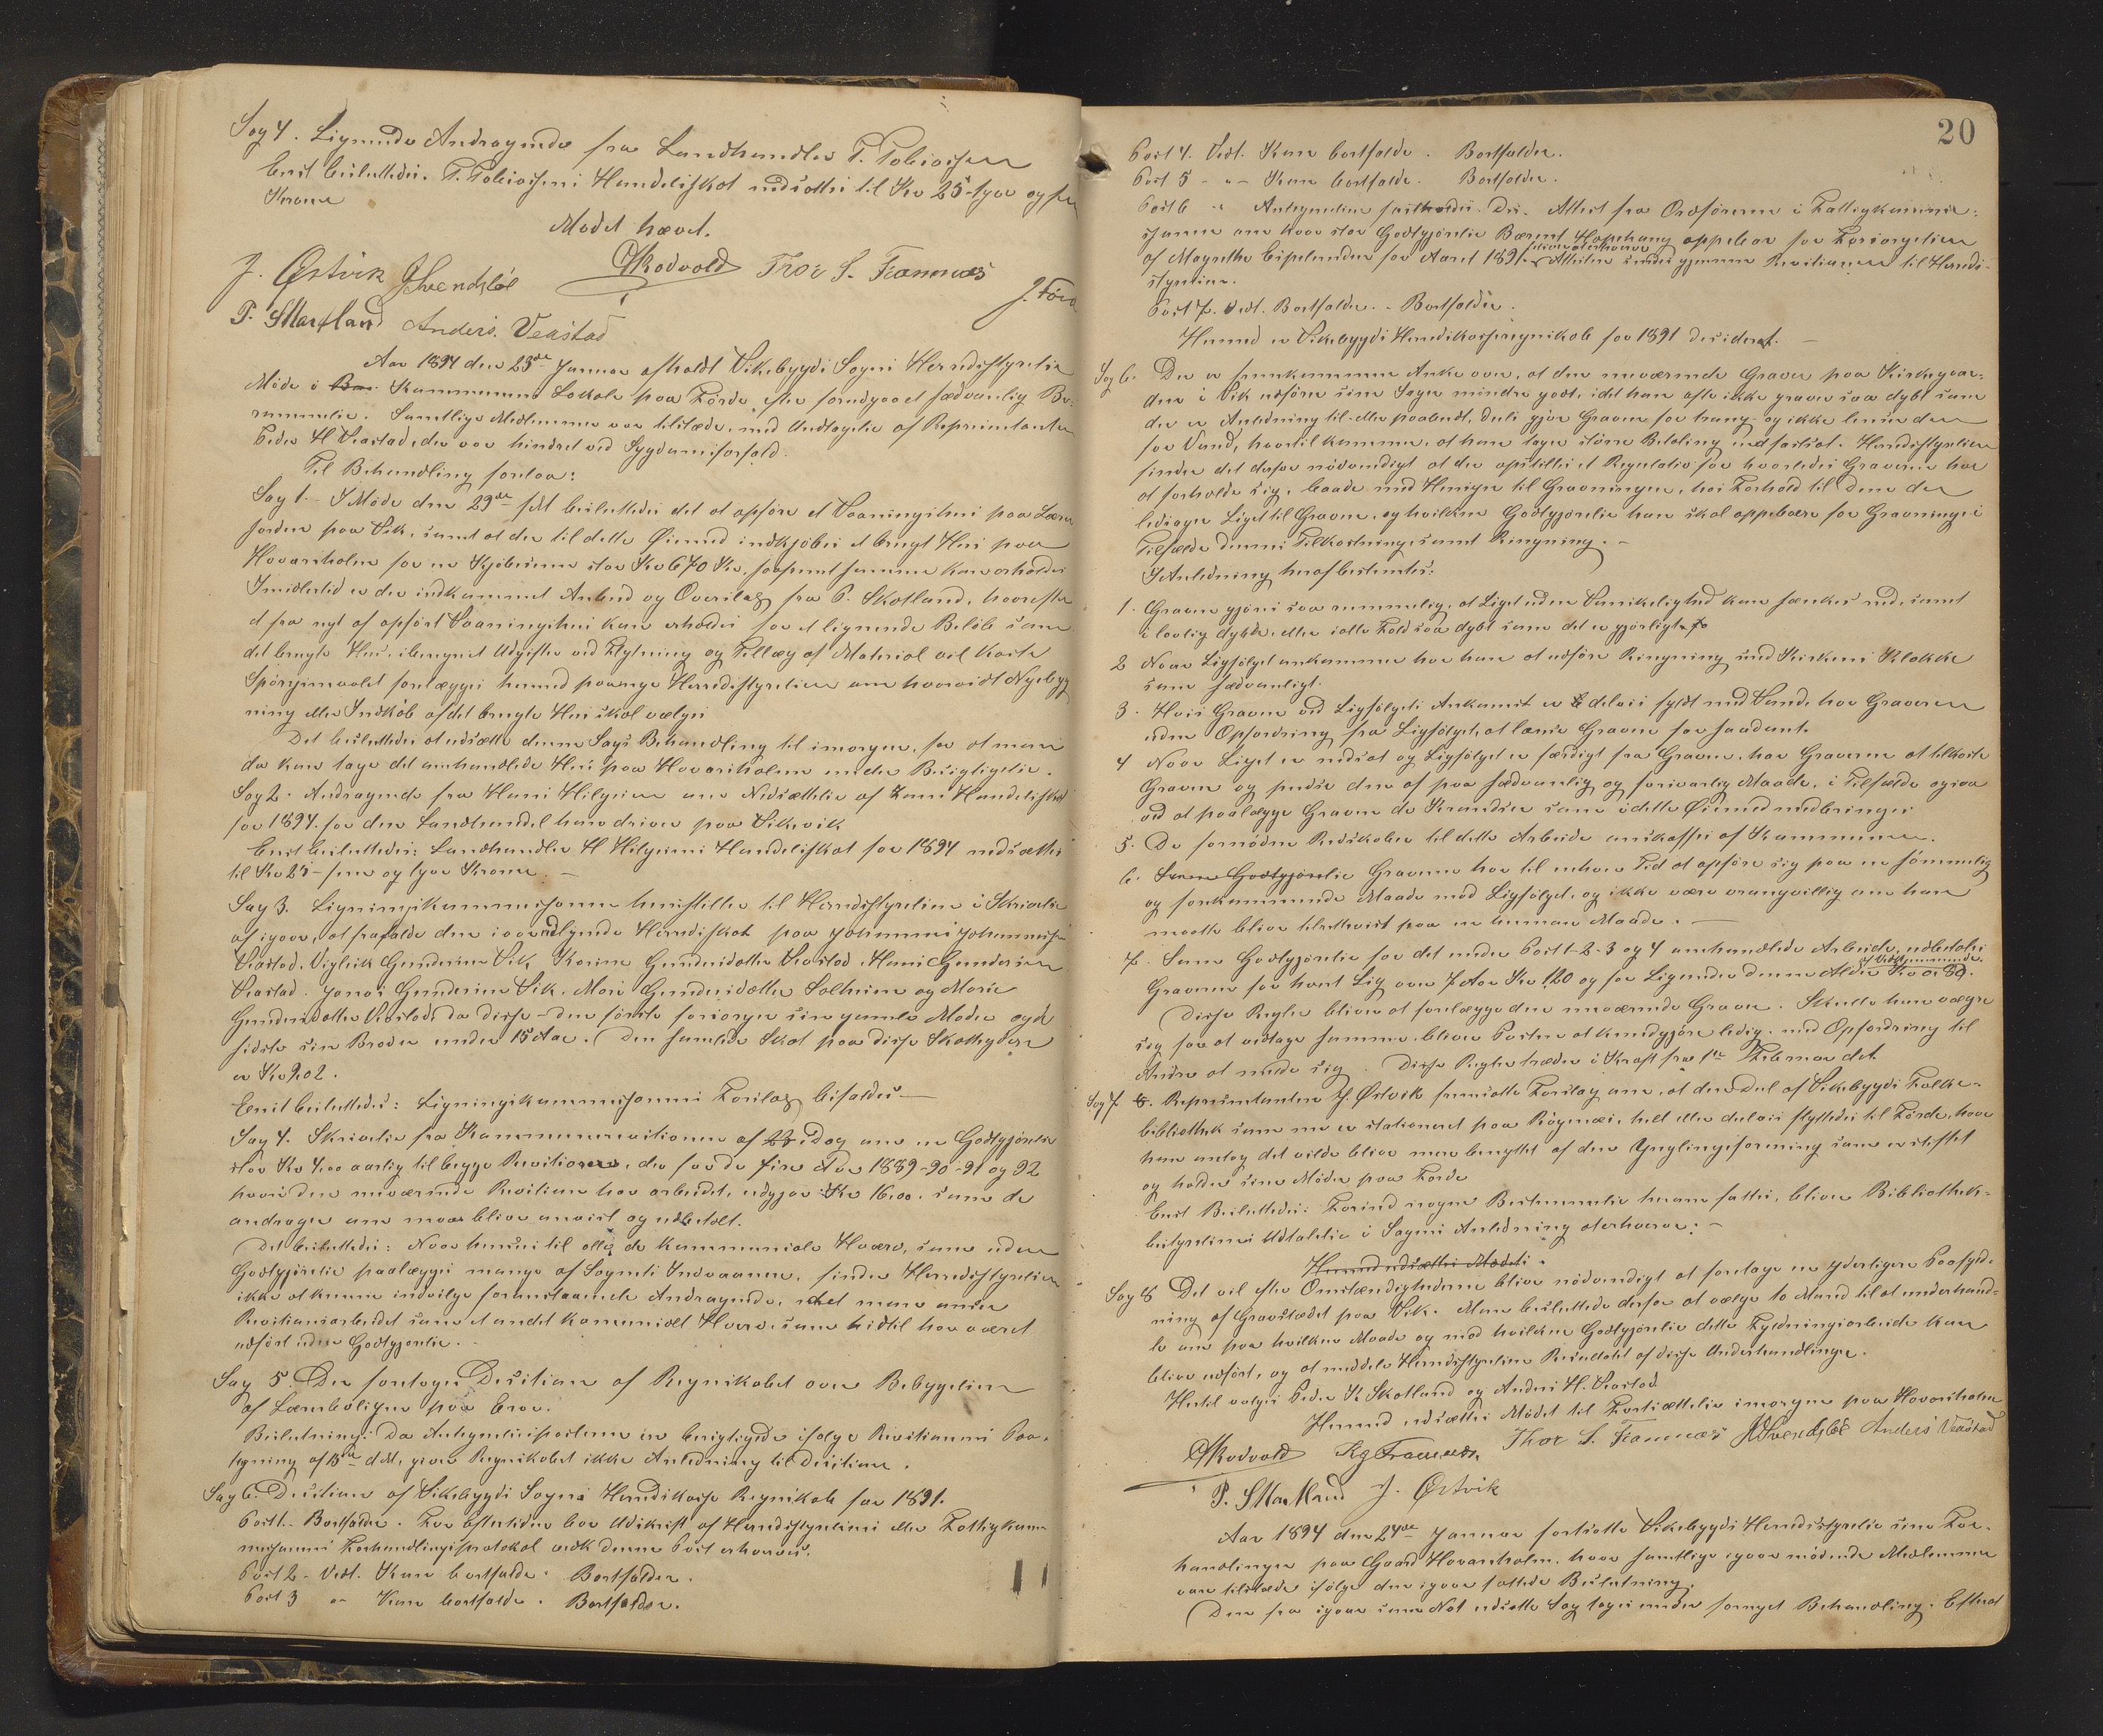 Sag 4. Lignende Andragende fra Landhandler T. Tobiassen
Enst besluttedes. T. Tobiassens Handelsskat nedsattes til Kr 25 - tyve og fem
Kroner
Mødet hævet.
J. Østvik J Svendsbøe O Rodvold Thor S. Framnæs
P. S Martland Anders. Veastad
Aar 1894 den 23de Januar afholdt Vikebygds Sogns Herredsstyrelse
Møde i Kommunens Lokale paa Førde, efter forudgaaet sædvanlig Be-
rammelse. Samtlige Medlemmer var tilstede, med Undtagelse af Repræsentanten
Peder H Veastad, der var hindret ved Sygdomsforfald.
Til Behandling forelaa:
Sag 1. I Møde den 29de besluttedes det at opføre et Vaaningshus paa Lærer
jorden paa Vik, samt at der til dette Øiemed indkjøbes et brugt Hus paa
Hovarsholm for en Kjøbesum stor Kr 670 Kr, saafremt Summen kan erholdes
Imidlertid er der indkommet Anbud og Overslag fra P. Skotland, hvorefter
et fra nyt af opført Vaaningshus kan erholdes for et lignende Beløb som
det brugte Hus, iberegnet Udgifter ved Flytning og Tillæg af Material vil koste
Spørgsmaalet forelægges hermed paanye Herredsstyrelsen om hvorvidt Nybyg
ning eller Indkøb af det brugte Hus skal vælges
Det besluttedes at udsætte denne Sags Behandling til imorgen, for at man
da kan tage det omhandlede Hus paa Hovarsholm under Besigtigelse.
Sag 2. Andragende fra Hans Hilgesen om Nedsættelse af Hans Handelsskat
for 1894 for den Landhandel han driver paa Vikevik
Enst besluttedes: Landhandler H Hilgesens Handelsskat for 1894 nedsættes
til Kr 25 - fem og tyve Kroner. -
Sag 3. Ligningskommissionen henstiller til Herredsstyrelsen i Skrivelse
af igaar, at frafalde den iaar udlignede Herredsskat paa Johannes Johannessen
Veastad, Vigleik Gundersen Vik, Karine Gundersdatter Veastad, Hans Gundersen
Veastad. Jonas Gundersen Vik. Mari Gundersdatter Solheim og Marie
Gundersdatter Veastad, da disse - den første forsørger sin gamle Moder og de
sidste sin Broder under 15 Aar. Den samlede Skat paa disse Skatteydere
er Kr 9.02.
Enst besluttedes: Ligningskommissionens Forslag bifaldes -
Sag 4. Skrivelse fra Kommunerevisionen af idag om en Godtgjørelse
stor Kr 4.00 aarlig til begge Revisorer, der for de fire Aar 1889-90-91 og 92
hvori den nuværende Revision har arbeidet, udgjør Kr 16.00. som de
andrager om maa blive anvist og udbetalt.
Det besluttedes: Naar henses til alle de kommunale Hverv, som uden
Godtgjørelse paalægges mange af Sognets Indvaanere, finder Herredsstyrelsen
ikke at kunne indvilge foranstaaende Andragende, idet man anser
Revisionsarbeidet som et andet kommunalt Hverv, som hidtil har været
udført uden Godtgjørelse. -
Sag 5. Der foretoges Decision af Regnskabet over Bebyggelsen
af Lærerboligen paa Eroe.
Beslutning: Da Antegnelsesposterne er berigtigede ifølge Revisionens Paa-
tegning af 13de ds, giver Regnskabet ikke Anledning til Decision.
Sag 6. Decision af Vikebygds Sogns Herredskasse Regnskab for 1891.
Post 1. Bortfalder. For Eftertiden bør Udskrift af Herredsstyrelsens eller Fattigkom-
missionens Forhandlingsprotokol vedk denne Post erhverves.
Post 2 - Vedt. Kan bortfalde. Bortfalder.
Post 3 " - Kan bortfalde. Bortfalder.
20
Post 4. Vedt. Kan bortfalde. Bortfalder.
Post 5 - " - Kan bortfalde. Bortfalder.
Post 6 " Antegnelsen fastholdes. Des. Attest fra Ordføreren i Fattigkommis-
sionen om hvor stor Godtgjørelse Bærent Hopehaug oppebar for Forsørgelsen
af Magrethe Espelunden for Aaret 1891. Attesten sendes gjennem Revisionen til Herreds-
styrelsen.
Post 7. Vedt. Bortfalder. - Bortfalder.
Hermed er Vikebygds Herredskasseregnskab for 1891 decideret. -
Sag 6. Der er fremkommen Anke over, at den nuværende Graver paa Kirkegaar-
den i Vik udfører sine Sager mindre godt, idet han ofte ikke graver saa dybt som
der er Anledning til eller paabudt, dels gjør Graven for trang og ikke lenser den
for Vand, hvortil kommer, at han tager større Betaling end fastsat. Herredsstyrelsen
finder det derfor nødvendigt at der opstilles et Regulativ for hvorledes Graveren har
at forholde sig, baade med Hensyn til Gravningen, hos Forhold til dem der
ledsager Liget til Graven, og hvilken Godtgjørelse han skal oppebære for Gravningen i
Tilfælde dennes Tilkastning samt Ringning. -
I Anledning heraf bestemtes:
1. Graven gjøres saa rummelig, at Liget uden Vanskelighed kan sænkes ned, samt
i lovlig dybde, eller i alle Fald saa dybt som det er gjørligt.
2 Naar Ligfølget ankommer har han at udføre Ringning med Kirkens Klokke
som sædvanligt.
3. Hvis Graven ved Ligfølgets Ankomst er delvis fyldt med Vand, har Graveren
uden Opfordring fra Ligfølget, at lænse Graven for saadant.
4 Naar Liget er nedsat og Ligfølget er færdigt fra Graven, har Graveren at tilkaste
Graven og pudse den af paa sædvanlig og forsvarlig Maade, i Tilfælde ogsaa
ved at paalægge Graven de Krandse som i dette Øiemed medbringes
5. De fornødne Redskaber til dette Arbeide anskaffes af Kommunen.
6. Som Godtgjørelse Graveren har til enhver Tid at opføre sig paa en sømmelig
og forekommende Maade mod Ligfølget, og ikke være vrangvillig om han
maatte blive tilrettevist paa en human Maade. -
7. Som Godtgjørelse for det under Post 1-2-3 og 4 omhandlede Arbeide, udbetales
Graveren for hvert Lig over 7 Aar Kr 1.20 og for Lig under denne Alder Kr 0.80.
Disse Regler bliver at forelægge den nuværende Graver. Skulde han vægre
sig for at vedtage samme, bliver Posten at kundgjøre ledig, med Opfordring til
Andre at melde sig. Disse Regler træder i Kraft fra 1ste Februar ds.
Sag 7. Repræsentanten J. Østvik fremsatte Forslag om, at den Del af Vikebygds Folke-
bibliothek som nu er stationeret paa Røgenæs, helt eller delvis flyttedes til Førde, hvor
han antog det vilde blive mere benyttet af den Ynglingeforening som er stiftet
og holder sine Møder paa Førde
Enst Besluttedes: Forind nogen Bestemmelse herom fattes, bliver Biblioteks-
bestyrelsens Udtalelse i Sagens Anledning at erhverve: -
Hermed udsættes Mødet.
Sag 8 Det vil efter Omstændighederne blive nødvendigt at foretage en yderligere Paafyld-
ning af Gravstedet paa Vik. Man besluttede derfor at vælge to Mand til at underhand-
le om paa hvilken Maade og mod hvilken Godtgjørelse dette Fyldningsarbeide kan
blive udført, og at meddele Herredsstyrelsen Resultatet af disse Underhandlinger.
Hertil valgtes Peder K. Skotland og Anders H. Veastad
Hermed udsættes Mødet til Fortsættelse imorgen paa Hovarsholm
O Rodvold Rg Framnes. Thor S. Framnæs J Svendsbøe Anders Veastad
P. S Martland J. Østvik
Aar 1894 den 24de Januar fortsatte Vikebygds Herredsstyrelse sine For-
handlinger paa Gaard Hovarsholm, hvor samtlige igaar mødende Medlemmer
var tilstede ifølge den igaar fattede Beslutning.
Den fra igaar som No 1 udsatte Sag toges under fornyet Behandling. Efterat